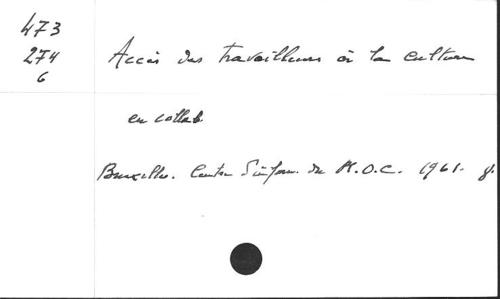 473
274
6
Accès des travailleurs à la culture
en collab.
Bruxelles. Centre d'inform. du M.O.C. 1961. 8.